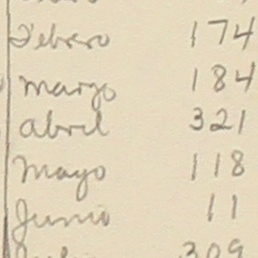 Febrero 174
Marzo 184
Abril 321
Mayo 118
Junio 11
Julio 309